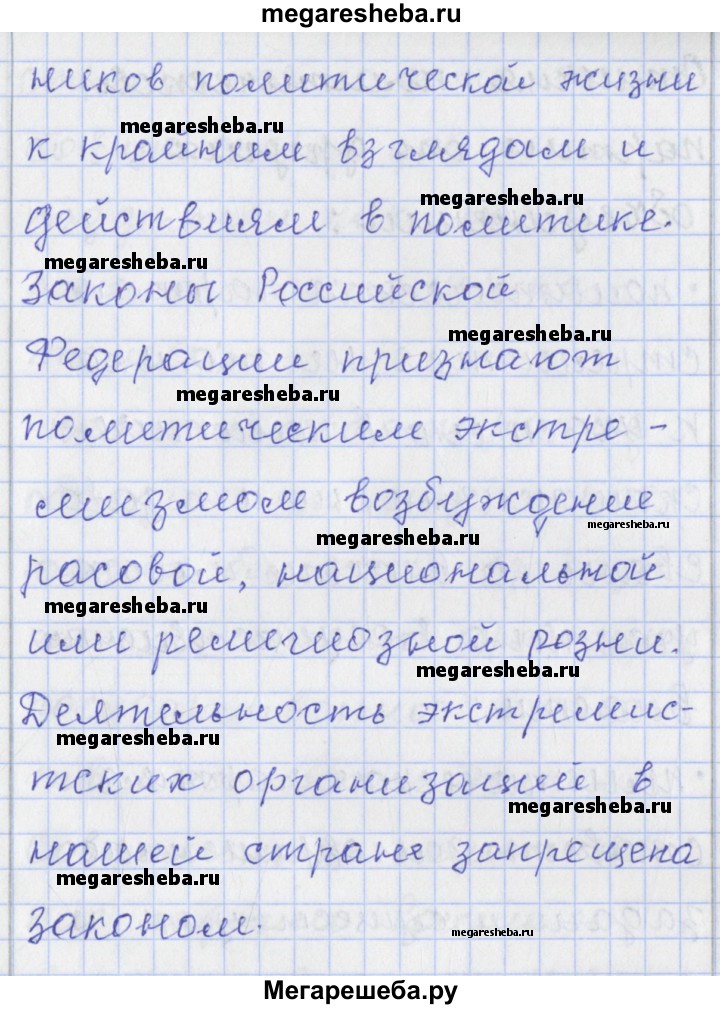 megaresheba.ru
ников политической жизни
megaresheba.ru
к крайним взглядам и
megaresheba.ru
действиям в политике.
megaresheba.ru
Законы Российской
megaresheba.ru
Федерации признают
megaresheba.ru
политическим экстре-
мизмом возбуждение
megaresheba.ru
megaresheba.ru
расовой, национальной
megaresheba.ru
или религиозной розни.
megaresheba.ru
Деятельность экстремис-
megaresheba.ru
тских организаций в
megaresheba.ru
нашей стране запрещена
megaresheba.ru
законом.
megaresheba.ru
Мегарешеба.ру